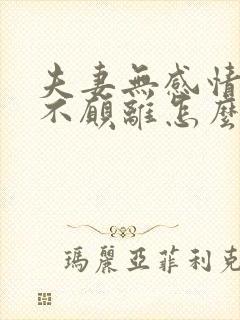 夫妻無感情
不願離怎麼
瑪麗亞菲利克